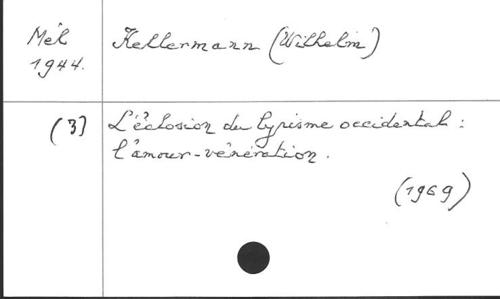 Mél
1944.
Kellermann (Wilhelm)
(3)
L'éclosion du lyrisme occidental :
l'amour-vénération.
(1969)